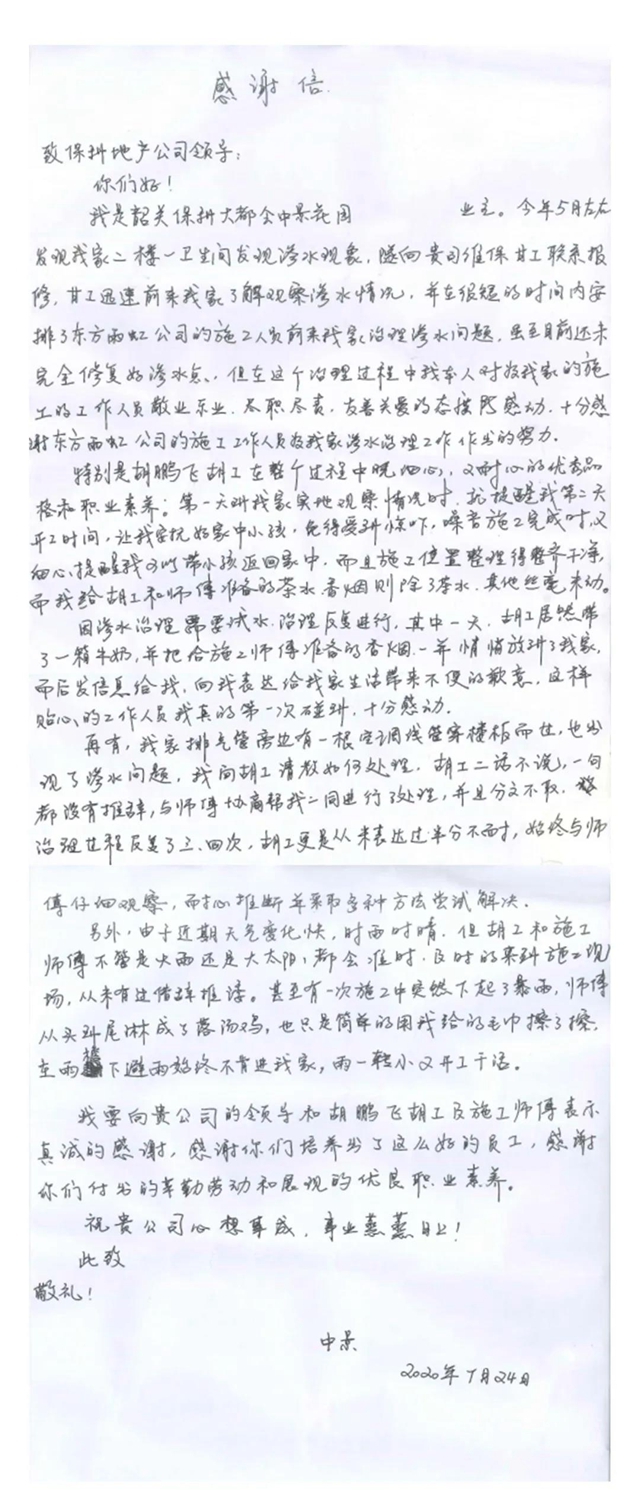 感谢信
致保利地产公司领导：
你们好！
我是韶关保利大都会中景花园 业主。今年5月左右
发现我家二楼一卫生间发现渗水现象，随向贵司维保甘工联系报
修，甘工迅速前来我家了解观察渗水情况，并在很短的时间内安
排了东方雨虹公司的施工人员前来我家治理渗水问题，虽至目前还未
完全修复好渗水点，但在这个治理过程中我本人对接我家的施
工的工作人员敬业乐业、尽职尽责、友善关爱的态度所感动，十分感
谢东方雨虹公司的施工工作人员及我家渗水治理工作作出的努力。
特别是胡鹏飞胡工在整个过程中既细心，又耐心的优秀品
格和职业素养；第一天到我家实地观察情况时，就提醒我第二天
开工时间，让我安抚好家中小孩，免得受到惊吓，噪音施工完成时，又
细心提醒我可以带小孩返回家中，而且施工位置整理得整齐干净，
而我给胡工和师傅准备的茶水、香烟则除了茶水，其他丝毫未动。
因渗水治理需要试水，治理反复进行，其中一天，胡工居然带
了一箱牛奶，并把给施工师傅准备的香烟一并悄悄放到了我家，
而后发信息给我，向我表达给我家生活带来不便的歉意，这样
贴心的工作人员我真的第一次碰到，十分感动。
再有，我家排气管旁边有一根空调线管穿楼板而过，也出
现了渗水问题，我向胡工请教如何处理，胡工二话不说，一句
都没有推辞，与师傅协商帮我一同进行了处理，并且分文不取，
治理过程反复了三、四次，胡工更是从未表达过半分不耐，始终与师
傅仔细观察，耐心推断并采取多种方法尝试解决。
另外，由于近期天气变化快，时雨时晴，但胡工和施工
师傅不管是大雨还是大太阳，都会准时、及时的来到施工现
场，从未有过借辞推诿。甚至有一次施工中突然下起了暴雨，师傅
从头到尾淋成了落汤鸡，也只是简单的用我给的毛巾擦了擦，
在雨棚下避雨始终不肯进我家，雨一转小又开工干活。
我要向贵公司的领导和胡鹏飞胡工及施工师傅表示
真诚的感谢，感谢你们培养出了这么好的员工，感谢
你们付出的辛勤劳动和展现的优良职业素养。
祝贵公司心想事成，事业蒸蒸日上！
此致
敬礼！
中景
2020年7月24日